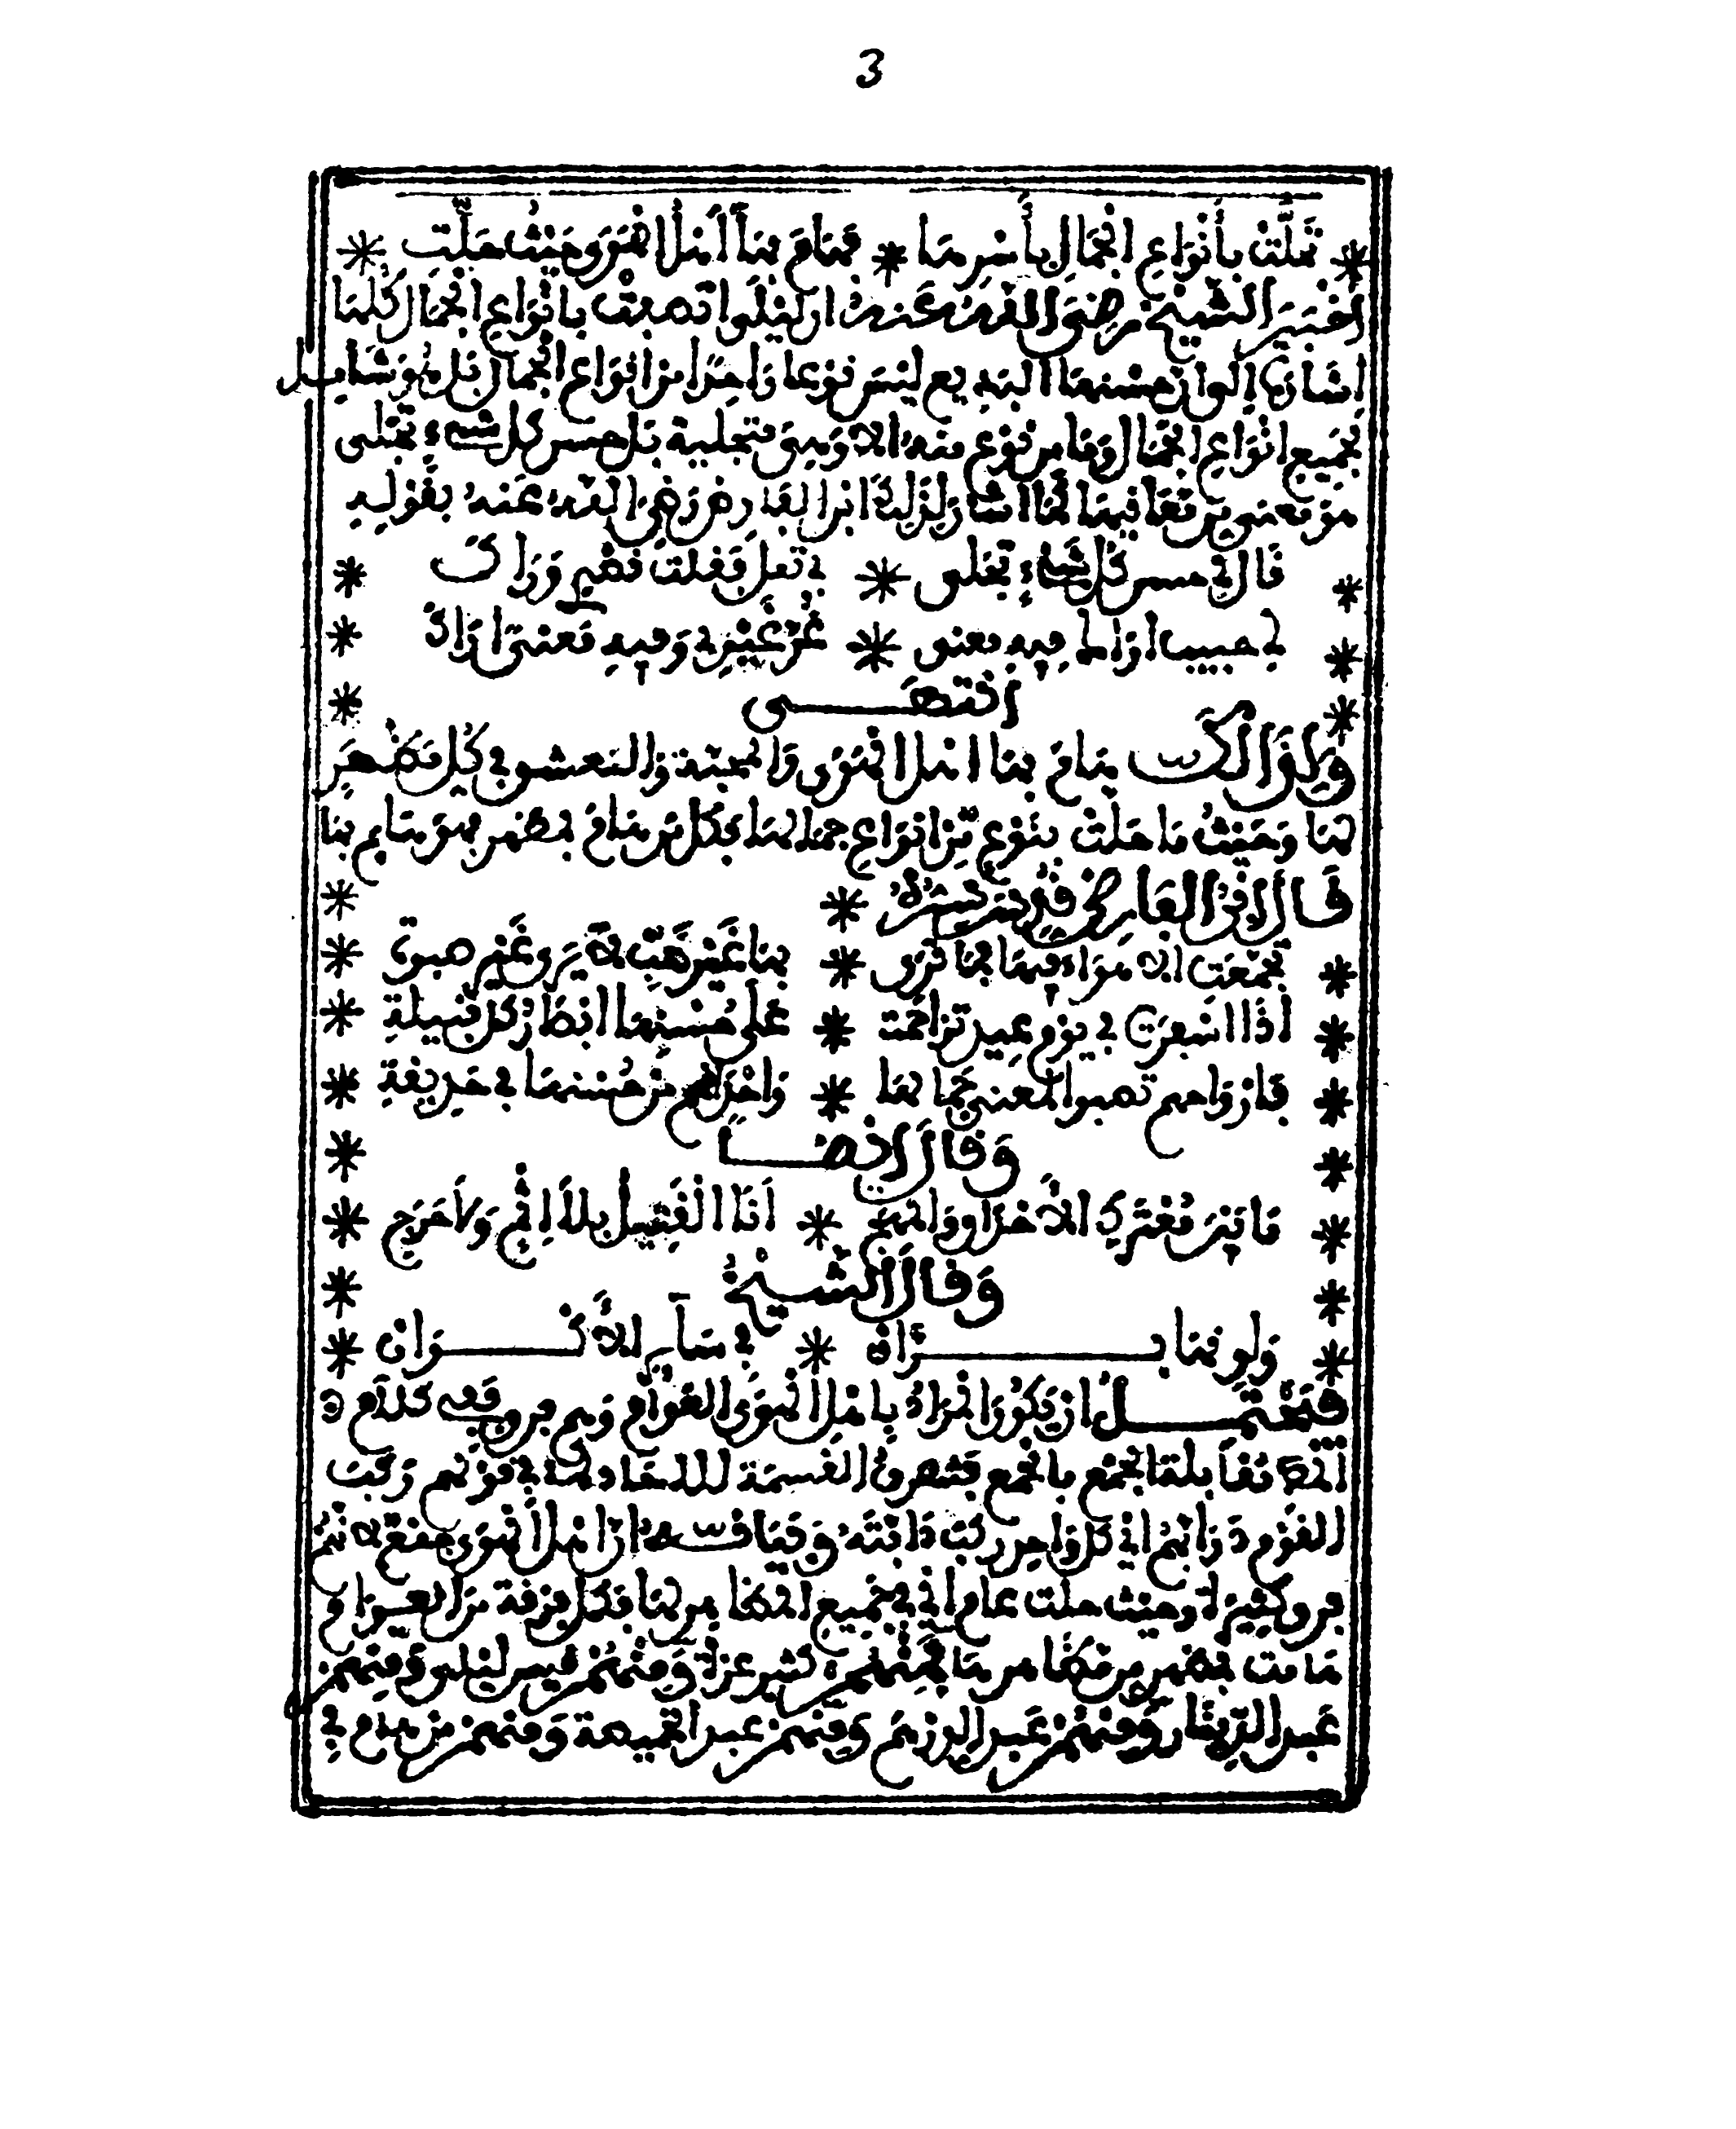 3
تَحَلَّتْ بِأَنْوَاعِ الْجَمَالِ بِأَسْرِهَا * فَهَامَ بِهَا أَهْلُ الْهَوَى حَيْثُ حَلَّتِ
أخبر الشيخ رضي الله عنه أن ليلى اتصفت بأنواع الجمال كلها
إشارة إلى أن حسنها البديع ليس نوعا واحدا من أنواع الجمال بل هو شامل
لجميع أنواع الجمال وما من نوع منه إلا وهي متجلية بل حسن كل شيء تجلى
من معنى من معانيها كما أشار لذلك ابن الفارض رضي الله عنه بقوله
قال لي حسن كل شيء تجلى * بي تملى فقلت قصدي وراك
لي حبيب أراك فيه معنى * غر غيري وفيه معنى أراك
انتهى
ولذلك هام بها أهل الهوى والمحبة والتعشق في كل مظهر
لها وحيث ما حلت بنوع من أنواع جمالها فكل من هام بمظهر فهو هائم بها
قال ابن الفارض قدس سره
تجمعت الأهواء فيها فما ترى * بها غير صب لا يرى غير صبوة
إذا أسفرت في يوم عيد تزاحمت * على حسنها أبصار كل قبيلة
فأرواحهم تصبو لمعنى جمالها * وأحداقهم من حسنها في حديقة
وقال أيضا
ما بين معترك الأحداق والمهج * أنا القتيل بلا إثم ولا حرج
وقال الشيخ
ولوفنا بـــدان * في سائر الأكـــوان
فيحتمـــل أن يكون المراد بأهل الهوى العوام وهم فرق
مقابلة الجمع بالجمع فتصرف القسمة للآحاد كما في قولهم ركب
القوم دوابهم أي كل واحد ركب دابته أن أهل الهوى
فرق كثيرة وحيث حلت عام أي في جميع فكل فرقة من العوام
هامت بمظهر من مظاهر كثير عزة ومنهم قيس ليلى ومنهم
عبد الدينار ومنهم عبد الدرهم ومنهم عبد الخميصة ومنهم من هام في